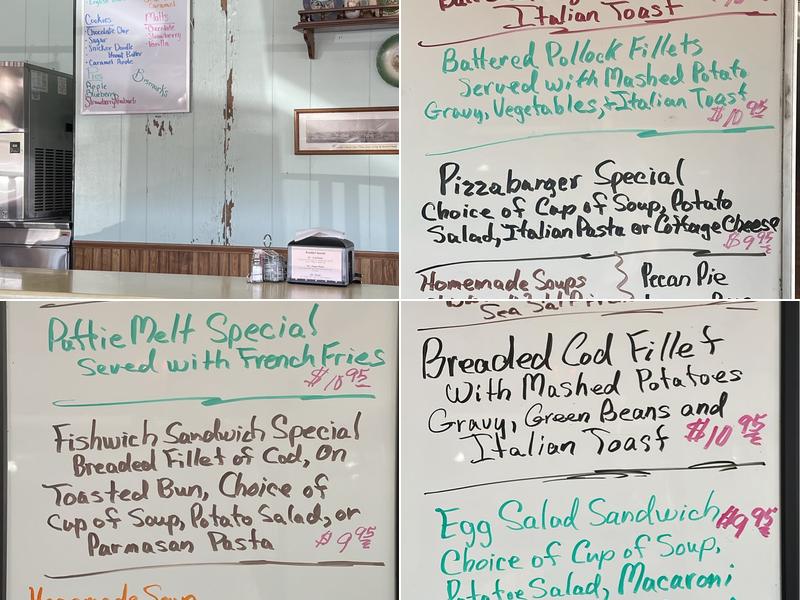 Caramel
Cookies
Malts
Chocolate Chip
Chocolate
Sugar
Strawberry
Snicker Doodle
Vanilla
Peanut Butter
Caramel Apple
Pies
Brownies
Apple
Blueberry
Strawberry Rhubarb
Italian Toast
Battered Pollock Fillets
Served with Mashed Potato
Gravy, Vegetables, + Italian Toast
$10 95
Pizzaburger Special
Choice of Cup of Soup, Potato
Salad, Italian Pasta or Cottage Cheese
$9 95
Homemade Soups
Pecan Pie
Pattie Melt Special
Served with French Fries
$10 95
Fishwich Sandwich Special
Breaded Fillet of Cod, On
Toasted Bun, Choice of
Cup of Soup, Potato Salad, or
Parmasan Pasta
$9 95
Homemade Soup
Sea Salt
Breaded Cod Fillet
with Mashed Potatoes
Gravy, Green Beans and
Italian Toast $10 95
Egg Salad Sandwich $9 95
Choice of Cup of Soup,
Potatoe Salad, Macaroni